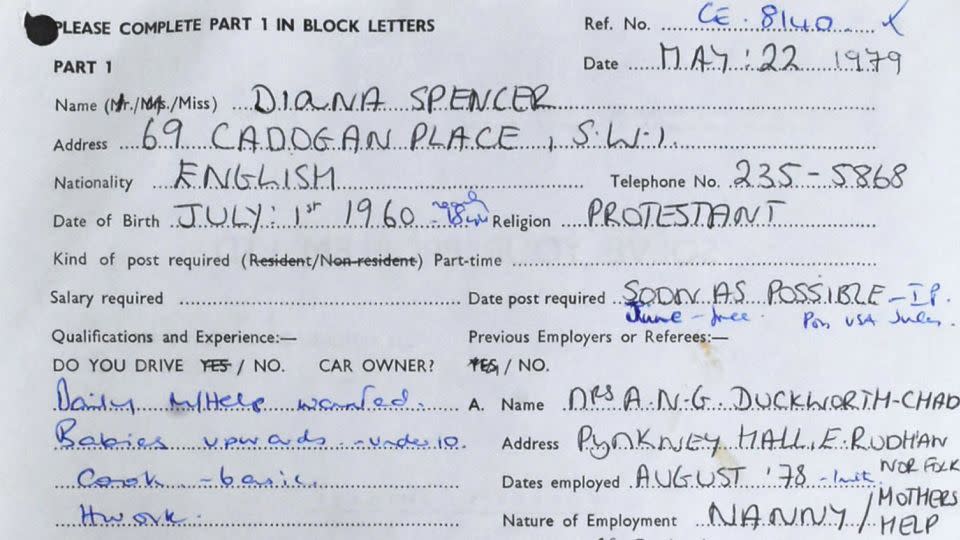 PLEASE COMPLETE PART 1 IN BLOCK LETTERS
Ref. No. CE. 8140
PART 1
Date MAY: 22 1979
Name (Mr./Mrs./Miss) DIANA SPENCER
Address 69 CADOGAN PLACE, S.W.1.
Nationality ENGLISH Telephone No. 235-5868
Date of Birth JULY: 1ST 1960 Religion PROTESTANT
Kind of post required (Resident/Non-resident) Part-time
Salary required Date post required SOON AS POSSIBLE
June - free. Poss USA July.
Qualifications and Experience:— Previous Employers or Referees:—
DO YOU DRIVE YES / NO. CAR OWNER? YES / NO.
Daily M/Help wanted. A. Name MRS A.N.G. DUCKWORTH-CHAD
Babies upwards - under 10. Address PYNKNEY HALL, E. RUDHAN
NORFOLK
Cook - basic. Dates employed AUGUST '78
Hwork. Nature of Employment NANNY / MOTHERS
HELP